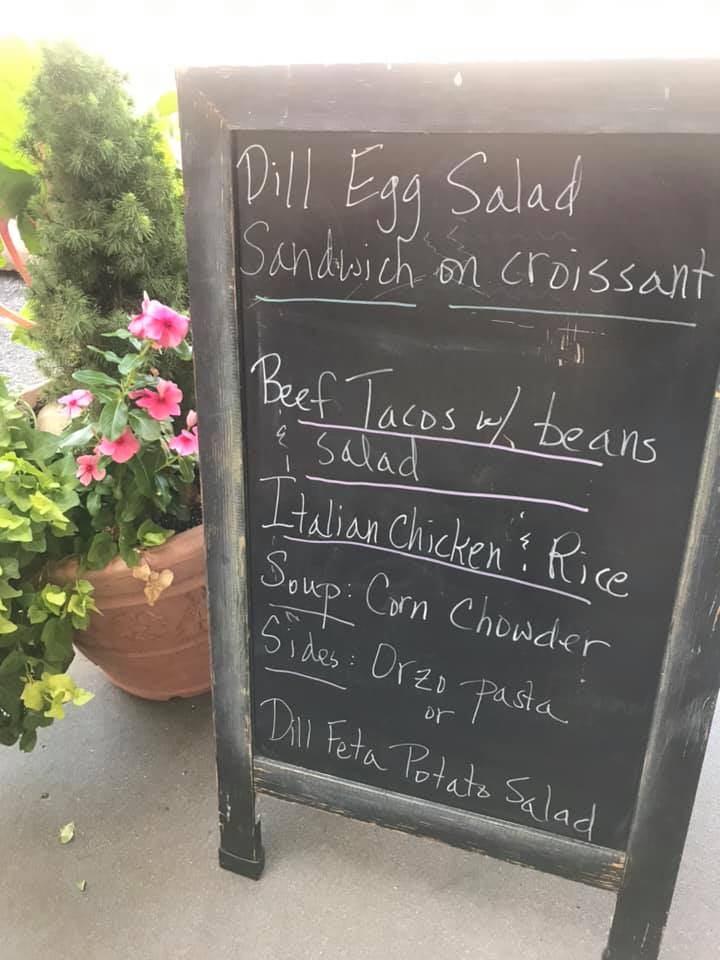 Dill Egg Salad
Sandwich on croissant
Beef Tacos w/ beans
& salad
Italian Chicken & Rice
Soup: Corn Chowder
Sides: Orzo pasta
or
Dill Feta Potato Salad